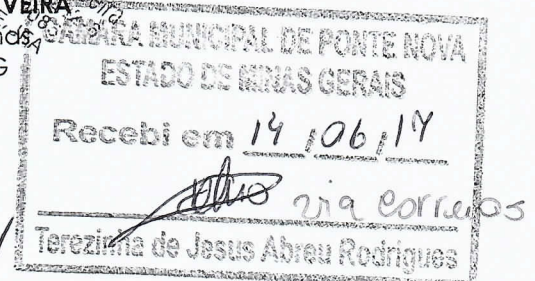 VEIRA
CÂMARA MUNICIPAL DE PONTE NOVA
ESTADO DE MINAS GERAIS
Recebi em 14,06,17
via Correios
Terezinha de Jesus Abreu Rodrigues